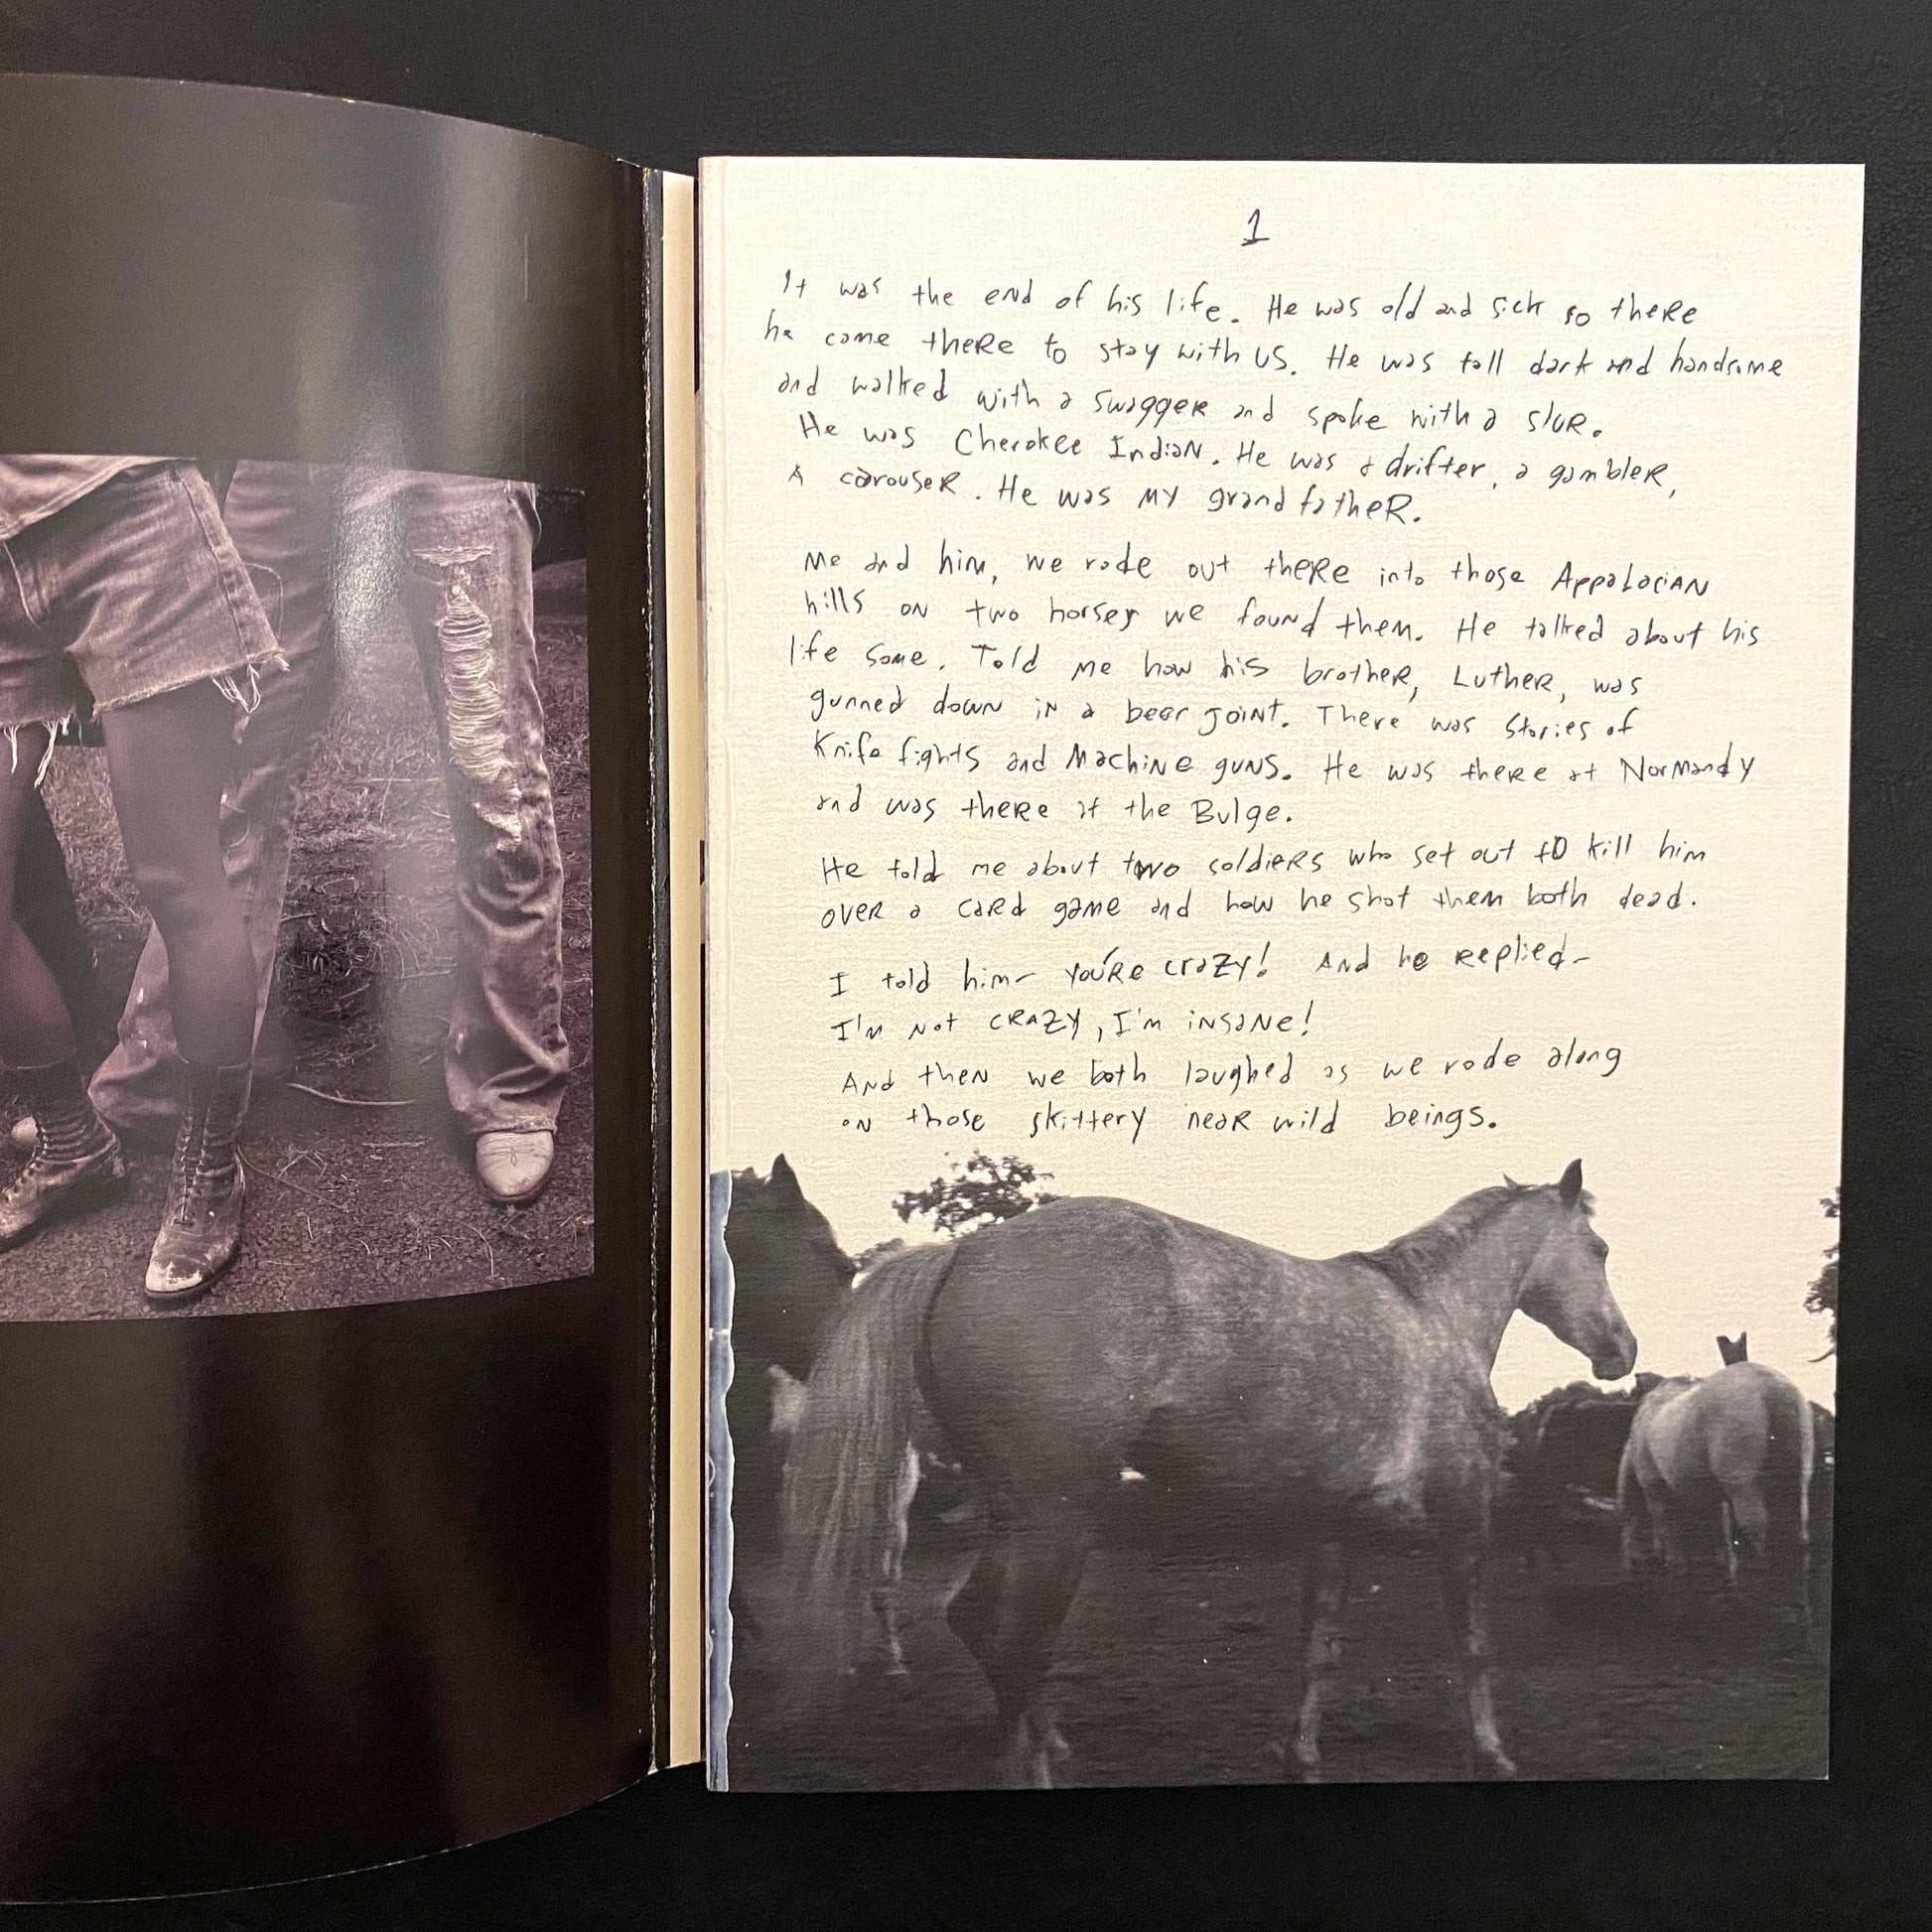 1
It was the end of his life. He was old and sick so there
he came there to stay with us. He was tall dark and handsome
and walked with a swagger and spoke with a slur.
He was Cherokee Indian. He was a drifter, a gambler,
A carouser. He was my grandfather.
Me and him, we rode out there into those Appalacian
hills on two horses we found them. He talked about his
life some. Told me how his brother, Luther, was
gunned down in a beer joint. There was stories of
Knife fights and machine guns. He was there at Normandy
and was there at the Bulge.
He told me about two soldiers who set out to kill him
over a card game and how he shot them both dead.
I told him- you're crazy! And he replied-
I'm not crazy, I'm insane!
And then we both laughed as we rode along
on those skittery near wild beings.